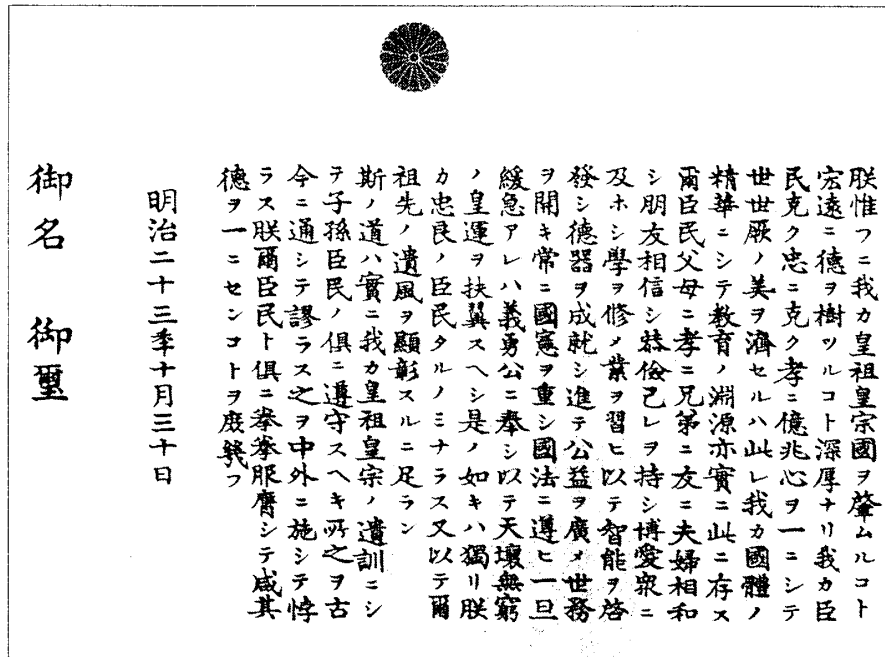 朕惟フニ我カ皇祖皇宗國ヲ肇ムルコト
宏遠ニ德ヲ樹ツルコト深厚ナリ我カ臣
民克ク忠ニ克ク孝ニ億兆心ヲ一ニシテ
世世厥ノ美ヲ濟セルハ此レ我カ國體ノ
精華ニシテ教育ノ淵源亦實ニ此ニ存ス
爾臣民父母ニ孝ニ兄弟ニ友ニ夫婦相和
シ朋友相信シ恭儉己レヲ持シ博愛衆ニ
及ホシ學ヲ修メ業ヲ習ヒ以テ智能ヲ啓
發シ德器ヲ成就シ進テ公益ヲ廣メ世務
ヲ開キ常ニ國憲ヲ重シ國法ニ遵ヒ一旦
緩急アレハ義勇公ニ奉シ以テ天壤無窮
ノ皇運ヲ扶翼スヘシ是ノ如キハ獨リ朕
カ忠良ノ臣民タルノミナラス又以テ爾
祖先ノ遺風ヲ顯彰スルニ足ラン
斯ノ道ハ實ニ我カ皇祖皇宗ノ遺訓ニシ
テ子孫臣民ノ俱ニ遵守スヘキ所之ヲ古
今ニ通シテ謬ラス之ヲ中外ニ施シテ悖
ラス朕爾臣民ト俱ニ拳拳服膺シテ咸其
德ヲ一ニセンコトヲ庶幾フ
明治二十三年十月三十日
御名 御璽